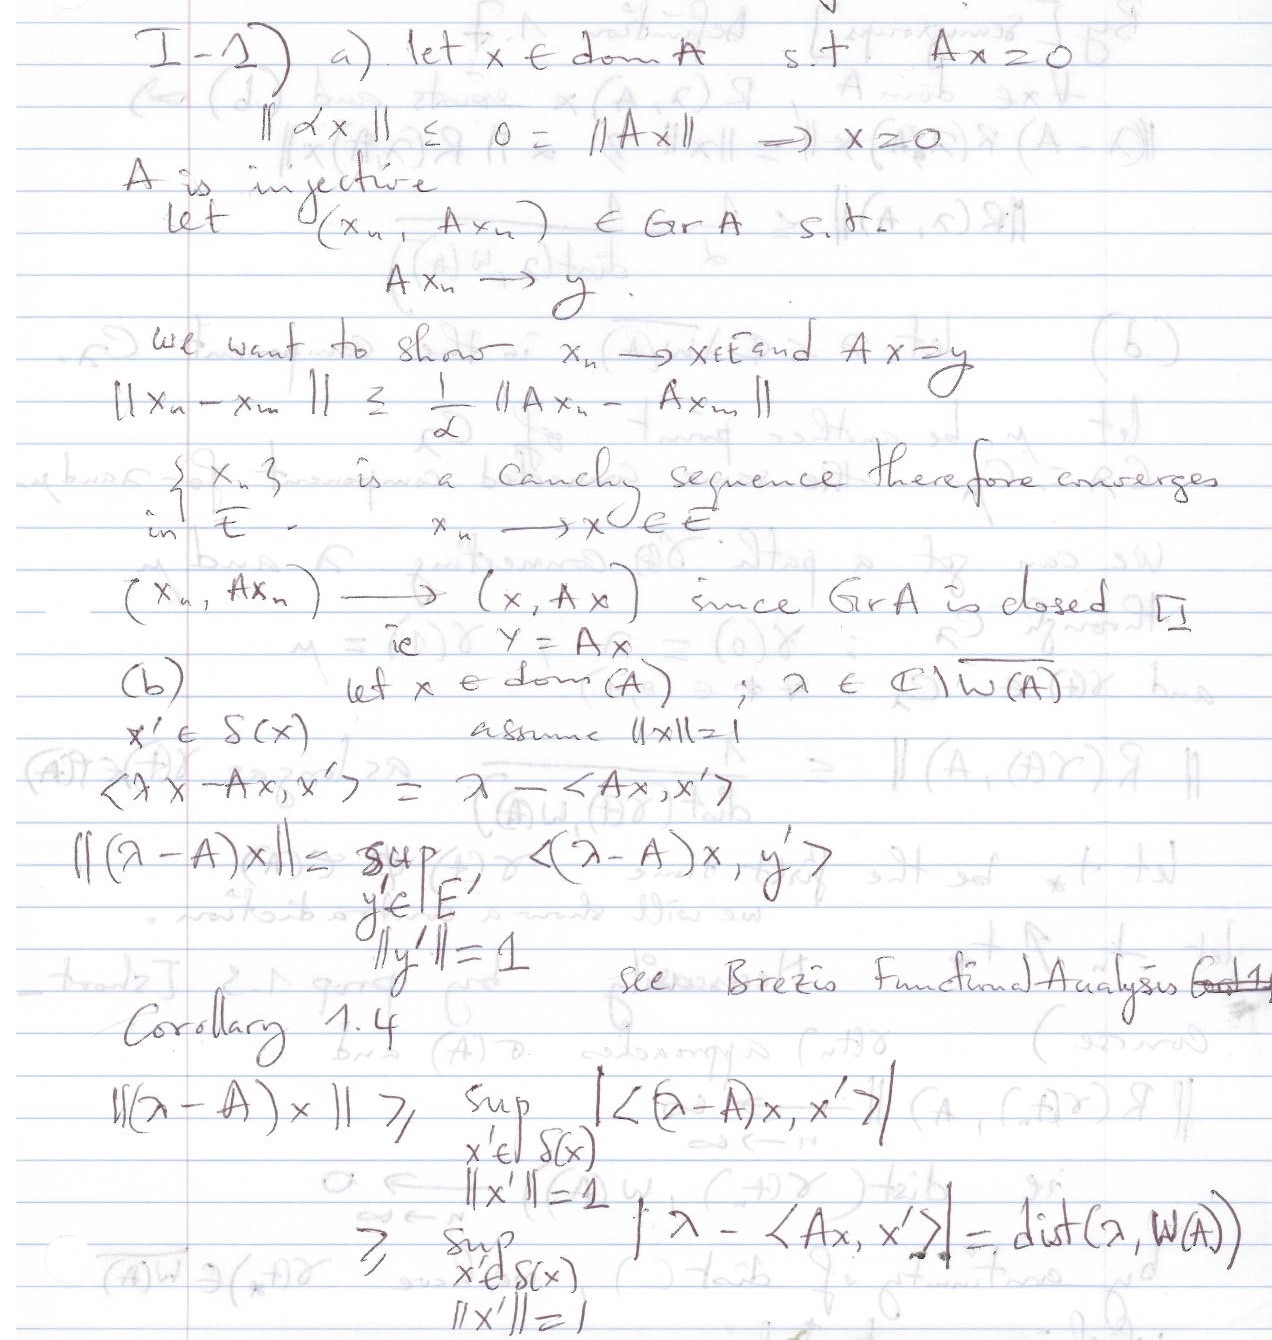 I-1) a) let x ∈ dom A s.t Ax = 0
||αx|| ≤ 0 = ||Ax|| ⟹ x = 0
A is injective
let (xₙ, Axₙ) ∈ Gr A s.t.
Axₙ → y.
we want to show xₙ → x∈E and Ax = y
||xₙ - xₘ|| ≤ 1/α ||Axₙ - Axₘ||
{xₙ} is a Cauchy sequence therefore converges
in E. xₙ → x ∈ E
(xₙ, Axₙ) → (x, Ax) since Gr A is closed □
ie y = Ax
(b) let x ∈ dom(A) ; λ ∈ ℂ\ \overline{W(A)}
x' ∈ S(x) assume ||x||=1
<λx - Ax, x'> = λ - <Ax, x'>
||(λ-A)x|| = sup <(λ-A)x, y'>
y' ∈ E'
||y'|| = 1
see Brezis Functional Analysis
Corollary 1.4
||(λ-A)x|| ≥ sup |<(λ-A)x, x'>|
x' ∈ S(x)
||x'|| = 1
≥ sup |λ - <Ax, x'>| = dist(λ, W(A))
x' ∈ S(x)
||x'|| = 1